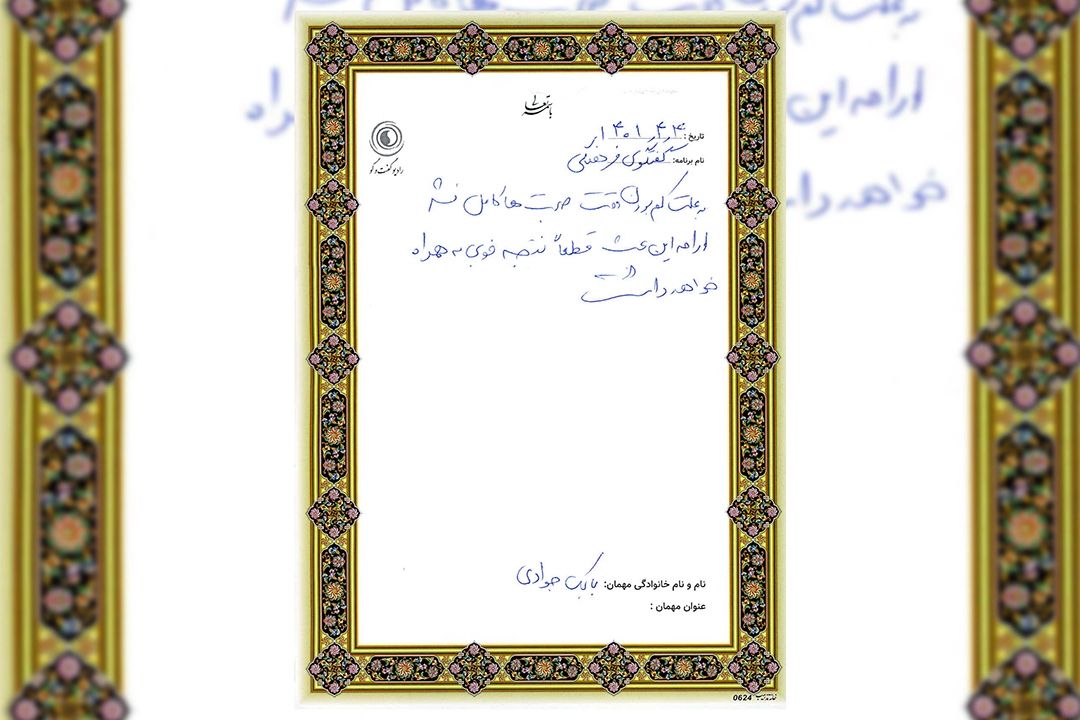 باسمه تعالی
رادیو گفت و گو
تاریخ:
نام برنامه: گفتگوی فرهنگی
به علت کم بودن وقت صحبت ها کامل نشد
ادامه این بحث قطعاً نتیجه خوبی به همراه
خواهد داشت
نام و نام خانوادگی مهمان: بابک جوادی
عنوان مهمان :
0624